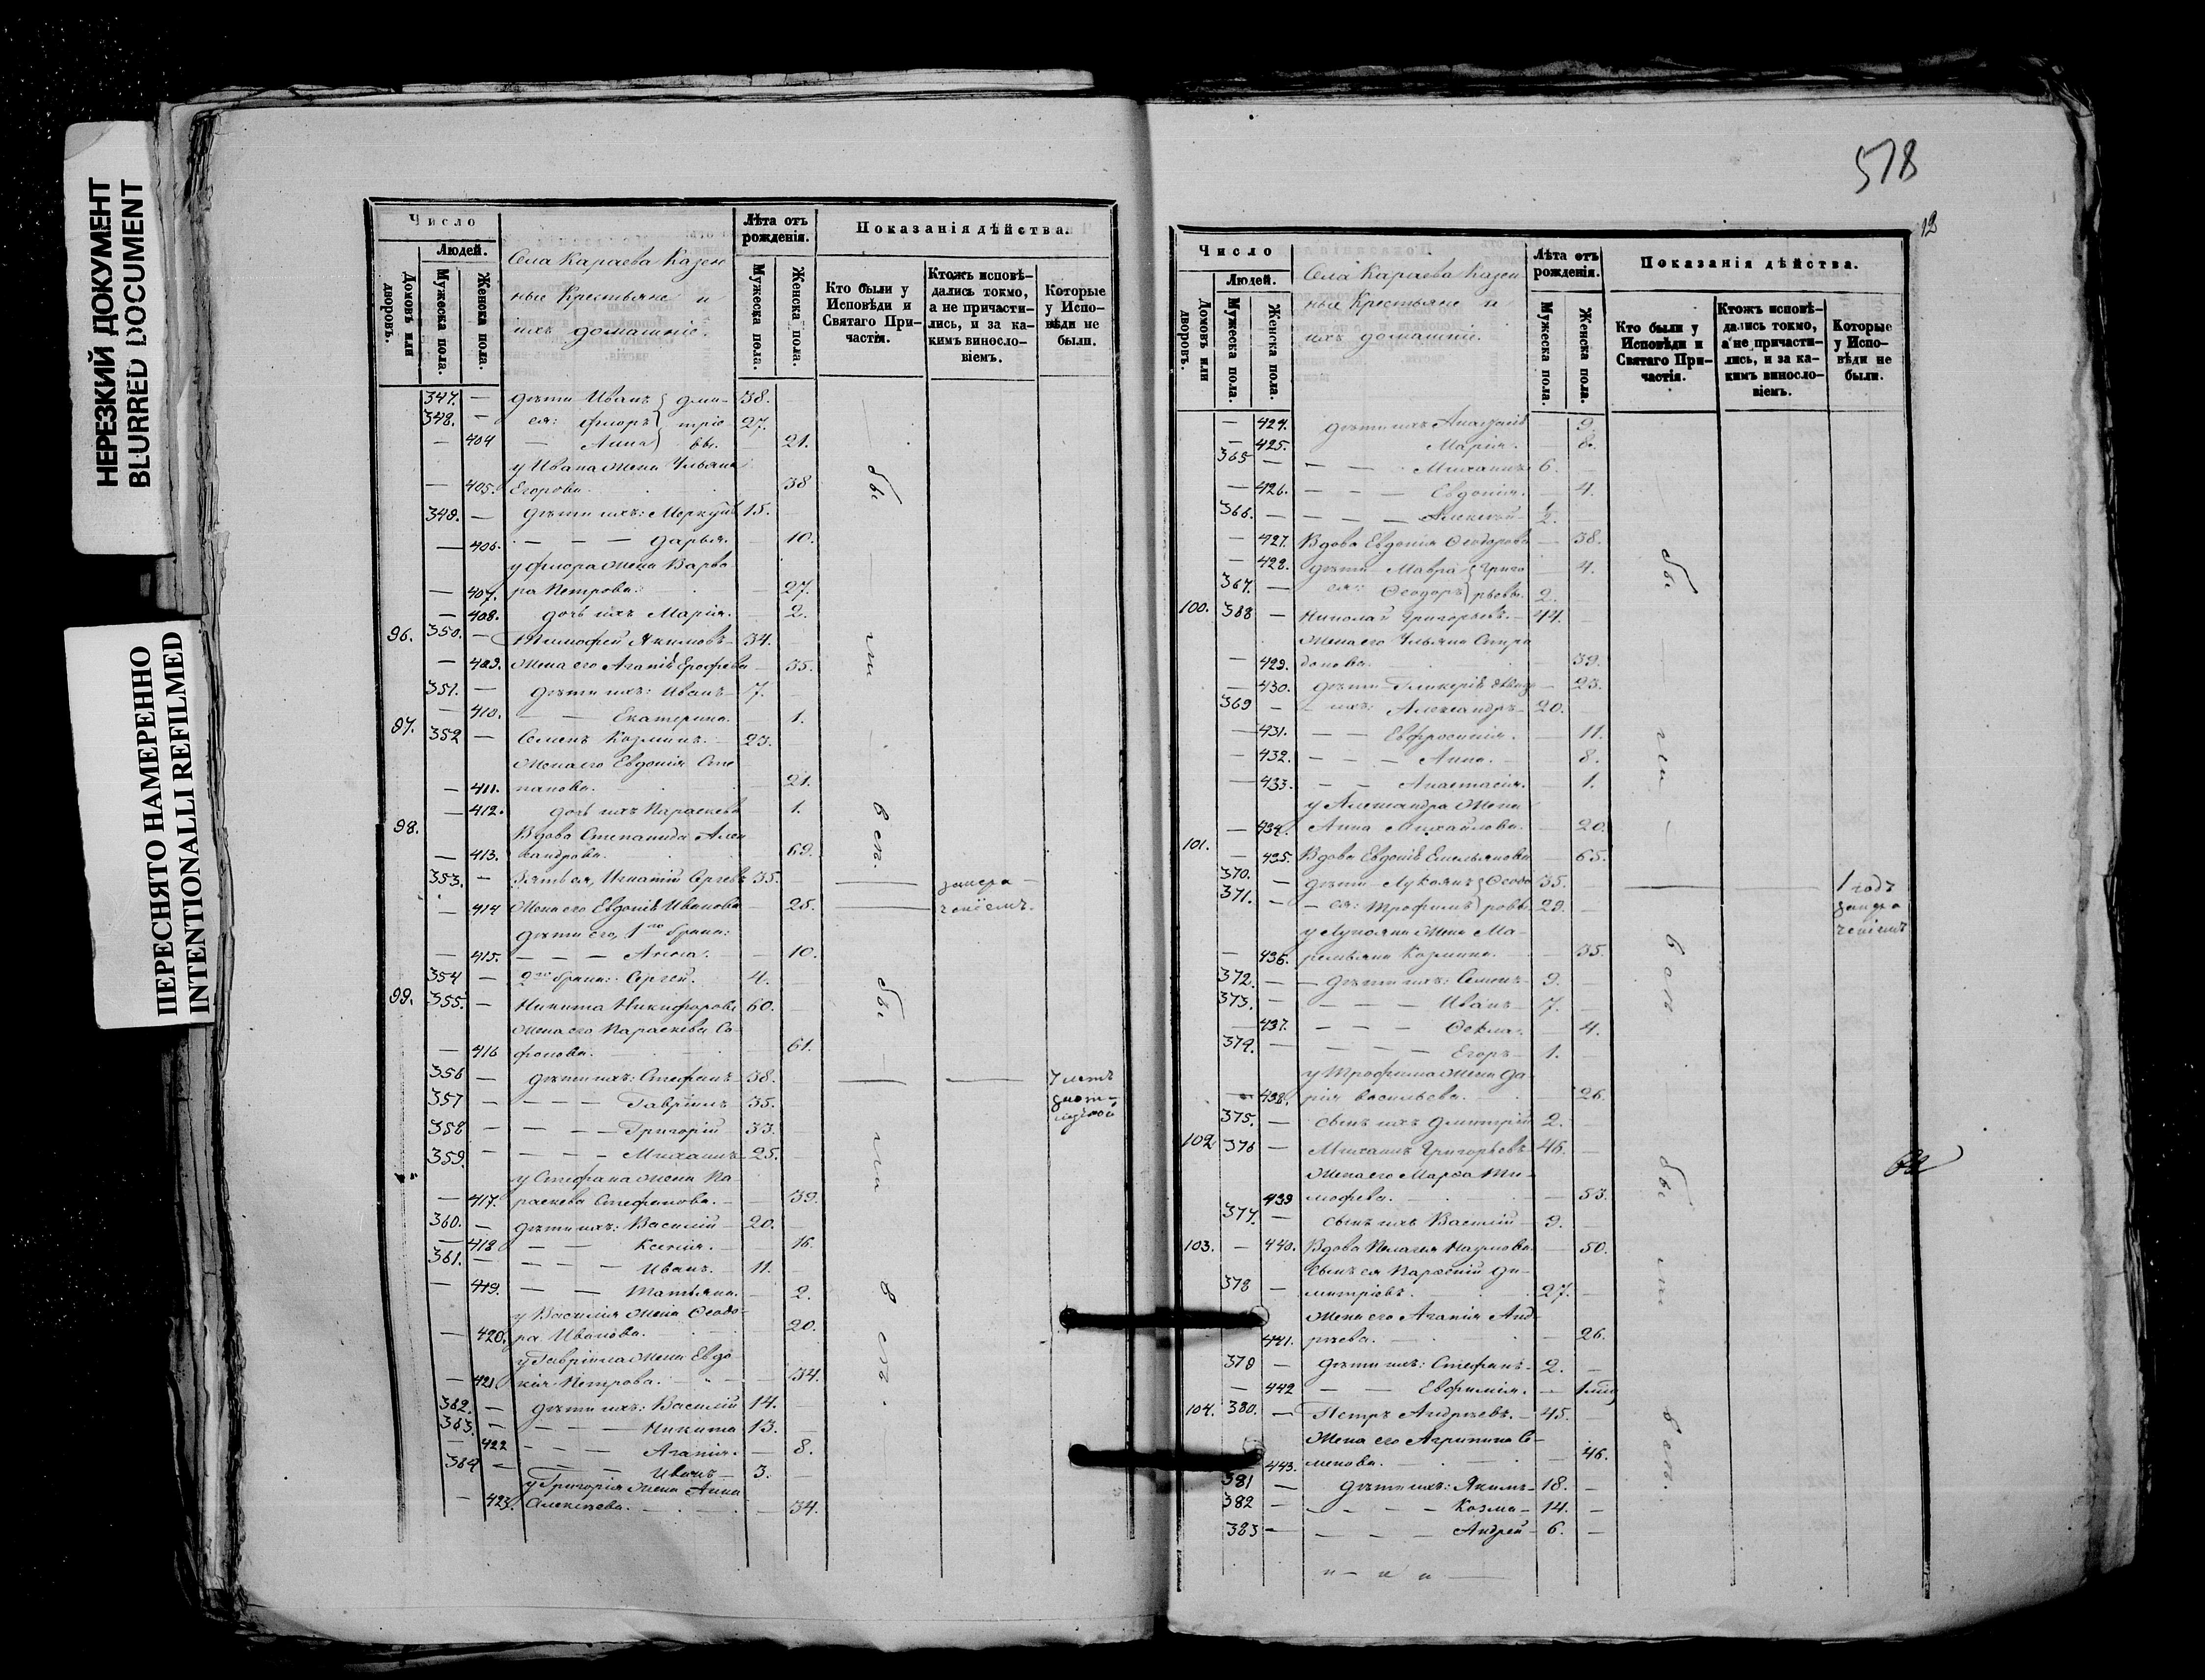 НЕРЕЗКИЙ ДОКУМЕНТ
BLURRED DOCUMENT
ПЕРЕСНЯТО НАМЕРЕННО
INTENTIONALLI REFILMED
Число
Людей.
Домовъ или дворовъ.
Мужеска пола.
Женска пола.
Села Караева Казен
ные Крестьяне и
ихъ домашніе.
Лѣта отъ рожденія.
Мужеска пола.
Женска пола.
Показанія дѣйства.
Кто были у Исповѣди и Святаго При-частія.
Ктожъ исповѣ-дались токмо, а не причасти-лись, и за ка-кимъ винослo-віемъ.
Которые у Испо-вѣди не были.
347. — дѣти Иванъ } дми- 38.
348. — ея: Флоръ } тріе 27.
— 404 — Анна } вы. 21.
у Ивана жена Ульяна
— 405. Егорова. 38
349. — дѣти ихъ: Меркулъ 15.
— 406. — — — Дарья. 10.
у Флора жена Варва
— 407. ра Петрова. 27.
— 408. дочь ихъ Марія. 2.
96. 350. — Тимофей Якимовъ 34.
— 409. Жена его Агапія Ерофеева 35.
351. — дѣти ихъ: Иванъ 7.
— 410. — — Екатерина. 1.
97. 352 — Семенъ Козминъ. 23.
Жена его Евдокія Сте
— 411. панова. 21.
— 412. дочь ихъ Параскева 1.
98. Вдова Степанида Алек
— 413. сандрова. 69.
353. — Зять ея, Игнатій Сергеевъ 35. — нера
— 414 Жена его Евдокія Иванова 25. — ченіемъ.
дѣти его, 1го брака:
— 415. — — — Анна. 10.
354 — 2го брака: Сергей. 4.
99. 355. — Никита Никифоровъ 60.
Жена его Параскева Со
— 416 фонова. 61.
356 — дѣти ихъ: Стефанъ 38. — — 7 летъ
357 — — — — Гавріилъ 35.
358 — — — — Григорій 33.
359. — — — — Михаилъ 25.
у Стефана жена Па
— 417. раскева Стефанова. 39.
360. — дѣти ихъ: Василій 20.
— 418 — — Ксенія. 16.
361. — — — — Иванъ. 11.
— 419. — — Татьяна. 2.
у Василія жена Ѳеодо-
— 420. ра Иванова. 20.
у Гавріила жена Евдо-
— 421 кія Петрова. 34.
362. — дѣти ихъ: Василій 14.
363. — — — — Никита 13.
— 422 — — — Агапія. 8.
364 — — — Иванъ 3.
у Григорія жена Анна
— 423. Алексѣева. 34.
бы — ли — вси.
бы — ли — вси.
578
12
Число
Людей.
Домовъ или дворовъ.
Мужеска пола.
Женска пола.
Села Караева Казен
ные Крестьяне и
ихъ домашніе.
Лѣта отъ рожденія.
Мужеска пола.
Женска пола.
Показанія дѣйства.
Кто были у Исповѣди и Святаго При-частія.
Ктожъ исповѣ-дались токмо, а не причасти-лись, и за ка-кимъ винослo-віемъ.
Которые у Испо-вѣди не были.
— 424. дѣти ихъ 9.
— 425. Марія. 8.
365 — — — Михаилъ 6.
— 426. — — — Евдокія. 4.
366. — — — — Алексѣй ½.
— 427. Вдова Евдокія Ѳеодорова 38.
— 428. дѣти Мавра } Григо 4.
367. — ея: Ѳеодоръ } рьевы. 2.
100. 368 — Николай Григорьевъ 44.
Жена его Ульяна Спири
— 429. донова. 39.
— 430. дѣти Гликерія 23.
369 — — ихъ: Александръ 20.
— 431. — — Евфросинія. 11.
— 432. — — — Анна. 8.
— 433. — — Анастасія. 1.
у Александра жена
— 434. Анна Михайлова. 20.
101. — 435. Вдова Евдокія Емельянова 65.
370. — дѣти Лукьянъ } Ѳеодо 35. — 1 годъ
371. — — ея: Трофимъ } ровы. 29.
у Лукьяна жена Ма-
436. ремьяна Козмина. 35.
372. — — дѣти ихъ: Семенъ 9.
373. — — — — Иванъ 7.
— 437. — — — Ѳекла. 4.
374. — — — — Егоръ 1.
у Трофима жена Да-
— 438. рія Васильева. 26.
375. — сынъ ихъ Димитрій 2.
102 376 — Михаилъ Григорьевъ 46.
Жена его Марѳа Ти-
439 мофеева. 53.
377. — сынъ ихъ Василій 9.
103. — 440. Вдова Пелагея Наумова. 50.
сынъ ея Парѳеній Ди-
378 — митріевъ. 27.
Жена его Агапія Анд-
441. рѣева. 26.
379 — дѣти ихъ: Стефанъ 2.
— 442 — — Евфимія.
104. 380. — Петръ Андрѣевъ. 45.
Жена его Агрипина Се-
443. менова. 46.
381 — дѣти ихъ: Якимъ 18.
382 — — — Козма 14.
383 — — — Андрей 6.
бы — ли — вси
бы — ли — вси.